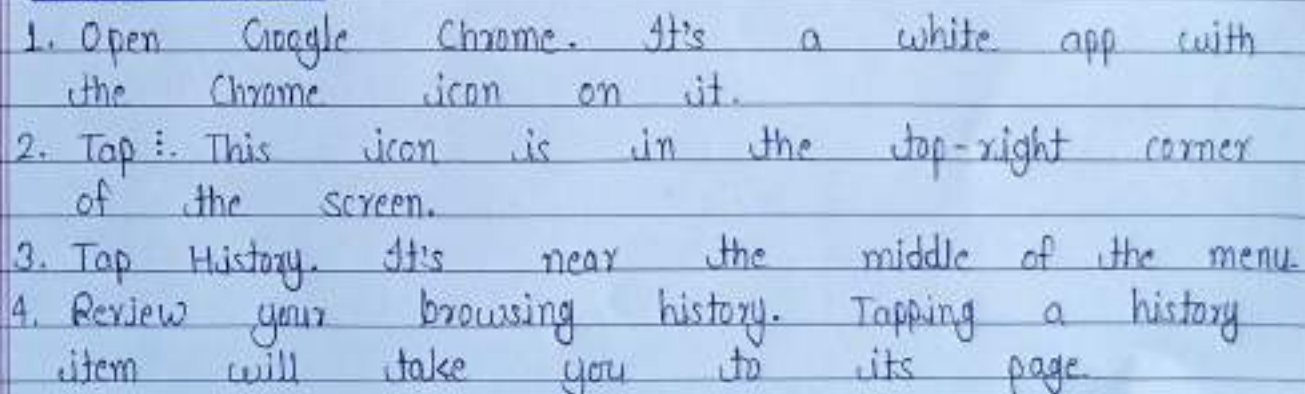 1. Open Google Chrome. It's a white app with
the Chrome icon on it.
2. Tap ⋮. This icon is in the top-right corner
of the screen.
3. Tap History. It's near the middle of the menu.
4. Review your browsing history. Tapping a history
item will take you to its page.